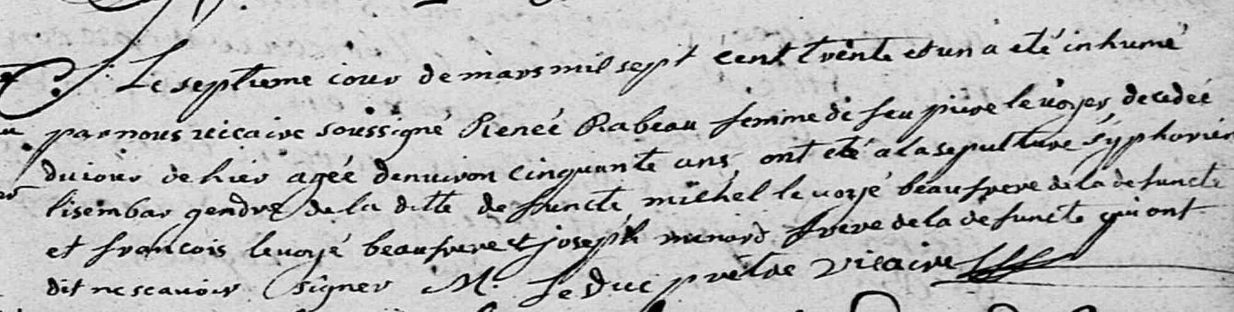 Le septieme jour de mars mil sept cent trente et un a eté inhumé
par nous vicaire soussigné Reneé Rabeau femme de feu piere levoyer decedeé
du jour de hier ageé denuiron cinquante ans, ont eté a la sepulture syphorien
lisembar gendre de la ditte defuncte michel le voyé beaufrere de la defuncte
et francois levoyé beaufrere et joseph menard frere de la defuncte qui ont
dit ne scavoir signer M. Leduc prêtre vicaire